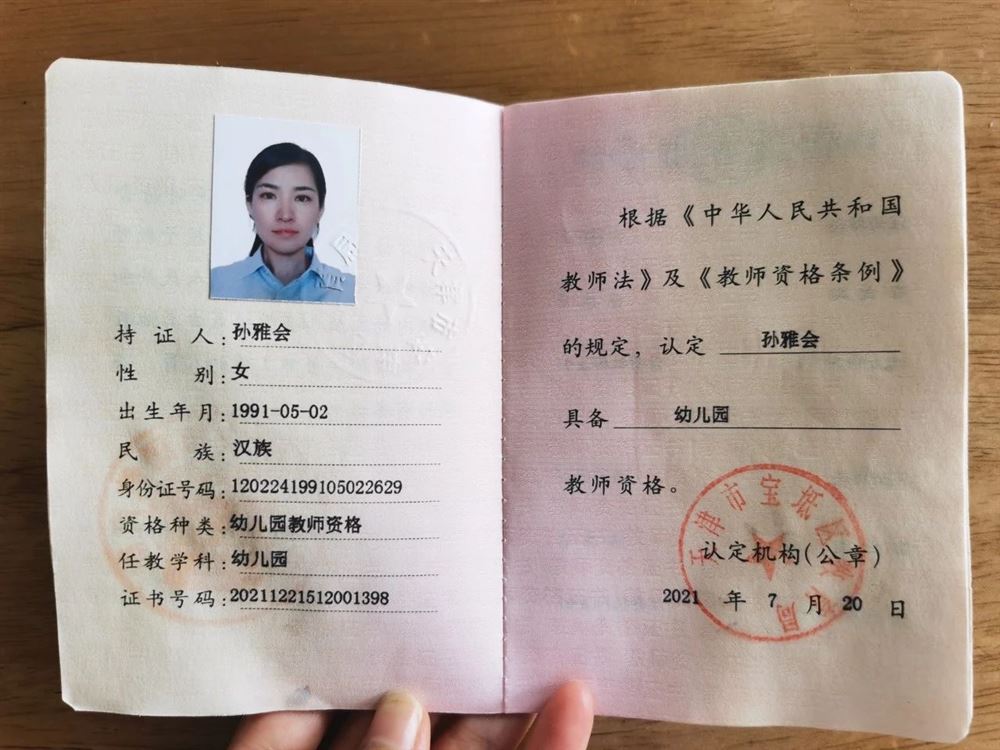 持证人：孙雅会
性别：女
出生年月：1991-05-02
民族：汉族
身份证号码：120224199105022629
资格种类：幼儿园教师资格
任教学科：幼儿园
证书号码：20211221512001398
根据《中华人民共和国
教师法》及《教师资格条例》
的规定，认定 孙雅会
具备 幼儿园
教师资格。
天津市宝坻区
认定机构(公章)
2021 年 7 月 20 日